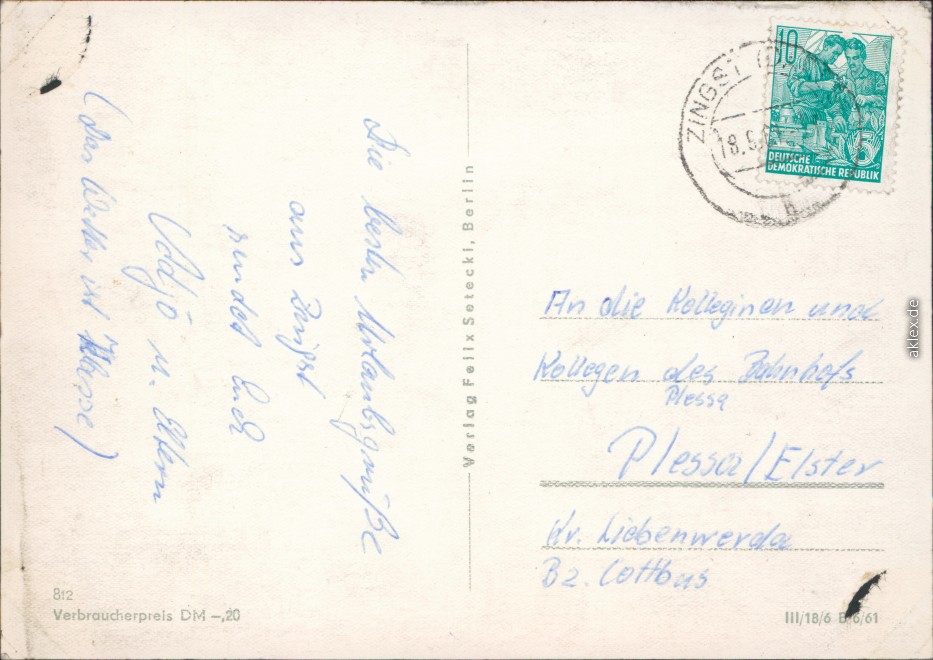 Die besten Urlaubsgrüße
aus Zingst
sendet Euch
u. Eltern
(das Wetter ist Klasse)
Verlag Felix Setecki, Berlin
ZINGST
10
5
DEUTSCHE
DEMOKRATISCHE REPUBLIK
An die Kolleginen und
Kollegen des Bahnhofs
Plessa
Plessa/Elster
Kr. Liebenwerda
Bz. Cottbus
812
Verbraucherpreis DM -,20
III/18/6 B 6/61
aklex.de